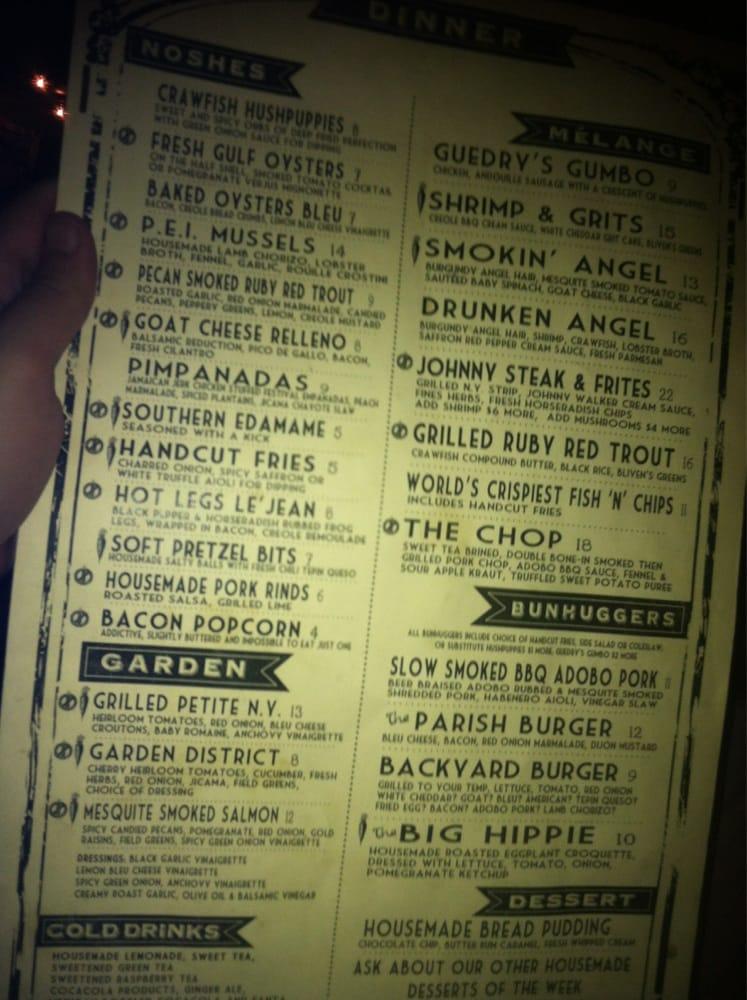 DINNER
NOSHES
CRAWFISH HUSHPUPPIES 8
SWEET AND SPICY ORBS OF DEEP FRIED PERFECTION
WITH GREEN ONION SAUCE FOR DIPPING
FRESH GULF OYSTERS 7
ON THE HALF SHELL, SMOKED TOMATO COCKTAIL
OR POMEGRANATE VERJUS MIGNONETTE
BAKED OYSTERS BLEU 7
BACON, CREOLE BREAD CRUMBS, LEMON BLEU CHEESE VINAIGRETTE
P.E.I. MUSSELS 14
HOUSEMADE LAMB CHORIZO, LOBSTER
BROTH, FENNEL, GARLIC, ROUILLE CROSTINI
PECAN SMOKED RUBY RED TROUT 9
ROASTED GARLIC, RED ONION MARMALADE, CANDIED
PECANS, PEPPERY GREENS, LEMON, CREOLE MUSTARD
GOAT CHEESE RELLENO 8
BALSAMIC REDUCTION, PICO DE GALLO, BACON,
FRESH CILANTRO
PIMPANADAS 9
JAMAICAN JERK CHICKEN STUFFED FESTIVAL EMPANADAS, PEACH
MARMALADE, SPICED PLANTAINS, JICAMA CHAYOTE SLAW
SOUTHERN EDAMAME 5
SEASONED WITH A KICK
HANDCUT FRIES 5
CHARRED ONION, SPICY SAFFRON OR
WHITE TRUFFLE AIOLI FOR DIPPING
HOT LEGS LE'JEAN 8
BLACK PEPPER & HORSERADISH RUBBED FROG
LEGS, WRAPPED IN BACON, CREOLE REMOULADE
SOFT PRETZEL BITS 7
HOUSEMADE SALTY BALLS WITH FRESH CHILI TEPIN QUESO
HOUSEMADE PORK RINDS 6
ROASTED SALSA, GRILLED LIME
BACON POPCORN 4
ADDICTIVE, SLIGHTLY BUTTERED AND IMPOSSIBLE TO EAT JUST ONE
GARDEN
GRILLED PETITE N.Y. 13
HEIRLOOM TOMATOES, RED ONION, BLEU CHEESE
CROUTONS, BABY ROMAINE, ANCHOVY VINAIGRETTE
GARDEN DISTRICT 8
CHERRY HEIRLOOM TOMATOES, CUCUMBER, FRESH
HERBS, RED ONION, JICAMA, FIELD GREENS,
CHOICE OF DRESSING
MESQUITE SMOKED SALMON 12
SPICY CANDIED PECANS, POMEGRANATE, RED ONION, GOLD
RAISINS, FIELD GREENS, SPICY GREEN ONION VINAIGRETTE
DRESSINGS: BLACK GARLIC VINAIGRETTE
LEMON BLEU CHEESE VINAIGRETTE
SPICY GREEN ONION, ANCHOVY VINAIGRETTE
CREAMY ROAST GARLIC, OLIVE OIL & BALSAMIC VINEGAR
COLD DRINKS
HOUSEMADE LEMONADE, SWEET TEA,
SWEETENED GREEN TEA
SWEETENED RASPBERRY TEA
COCACOLA PRODUCTS, GINGER ALE,
MÉLANGE
GUEDRY'S GUMBO 9
CHICKEN, ANDOUILLE SAUSAGE WITH A CRESCENT OF HUSHPUPPIES
SHRIMP & GRITS 15
CREOLE BBQ CREAM SAUCE, WHITE CHEDDAR GRIT CAKE, BLIVEN'S GREENS
SMOKIN' ANGEL 13
BURGUNDY ANGEL HAIR, MESQUITE SMOKED TOMATO SAUCE,
SAUTEED BABY SPINACH, GOAT CHEESE, BLACK GARLIC
DRUNKEN ANGEL 16
BURGUNDY ANGEL HAIR, SHRIMP, CRAWFISH, LOBSTER BROTH,
SAFFRON RED PEPPER CREAM SAUCE, FRESH PARMESAN
JOHNNY STEAK & FRITES 22
GRILLED N.Y. STRIP, JOHNNY WALKER CREAM SAUCE,
FINES HERBS, FRESH HORSERADISH CHIPS
ADD SHRIMP $6 MORE, ADD MUSHROOMS $4 MORE
GRILLED RUBY RED TROUT 16
CRAWFISH COMPOUND BUTTER, BLACK RICE, BLIVEN'S GREENS
WORLD'S CRISPIEST FISH 'N' CHIPS 11
INCLUDES HANDCUT FRIES
THE CHOP 18
SWEET TEA BRINED, DOUBLE BONE-IN SMOKED THEN
GRILLED PORK CHOP, ADOBO BBQ SAUCE, FENNEL &
SOUR APPLE KRAUT, TRUFFLED SWEET POTATO PUREE
BUNHUGGERS
ALL BUNHUGGERS INCLUDE CHOICE OF HANDCUT FRIES, SIDE SALAD OR COLESLAW,
OR SUBSTITUTE HUSHPUPPIES $1 MORE, GUEDRY'S GUMBO $2 MORE
SLOW SMOKED BBQ ADOBO PORK 11
BEER BRAISED ADOBO RUBBED & MESQUITE SMOKED
SHREDDED PORK, HABENERO AIOLI, VINEGAR SLAW
the PARISH BURGER 12
BLEU CHEESE, BACON, RED ONION MARMALADE, DIJON MUSTARD
BACKYARD BURGER 9
GRILLED TO YOUR TEMP, LETTUCE, TOMATO, RED ONION
WHITE CHEDDAR? GOAT? BLEU? AMERICAN? TEPIN QUESO?
FRIED EGG? BACON? ADOBO PORK? LAMB CHORIZO?
the BIG HIPPIE 10
HOUSEMADE ROASTED EGGPLANT CROQUETTE,
DRESSED WITH LETTUCE, TOMATO, ONION,
POMEGRANATE KETCHUP
DESSERT
HOUSEMADE BREAD PUDDING
CHOCOLATE CHIP, BUTTER RUM CARAMEL, FRESH WHIPPED CREAM
ASK ABOUT OUR OTHER HOUSEMADE
DESSERTS OF THE WEEK